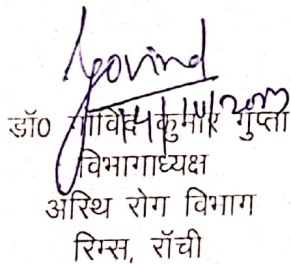 Govind
डॉ0 गोविंद कुमार गुप्ता
विभागाध्यक्ष
अस्थि रोग विभाग
रिम्स, राँची